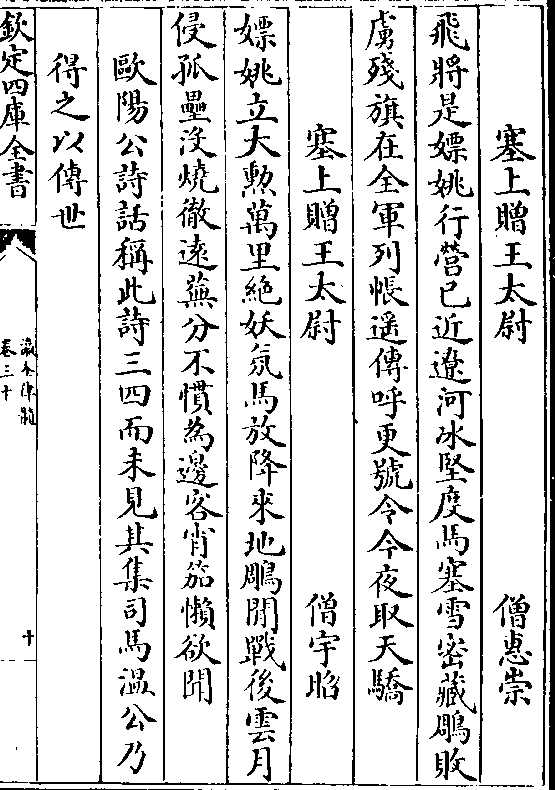 塞上贈王太尉　僧惠崇
飛將是嫖姚行營已近遼河冰堅度馬塞雪密藏鵰敗
虜殘旗在全軍列帳遥傳呼更號令今夜取天驕
塞上贈王太尉　僧宇昭
嫖姚立大勲萬里絶妖氛馬放降來地鵰閒戰後雲月
侵孤壘没燒徹遠蕪分不慣為邊客宵笳懶欲聞
歐陽公詩話稱此詩三四而未見其集司馬温公乃
得之以傳世
欽定四庫全書
瀛奎律髓
卷三十
十